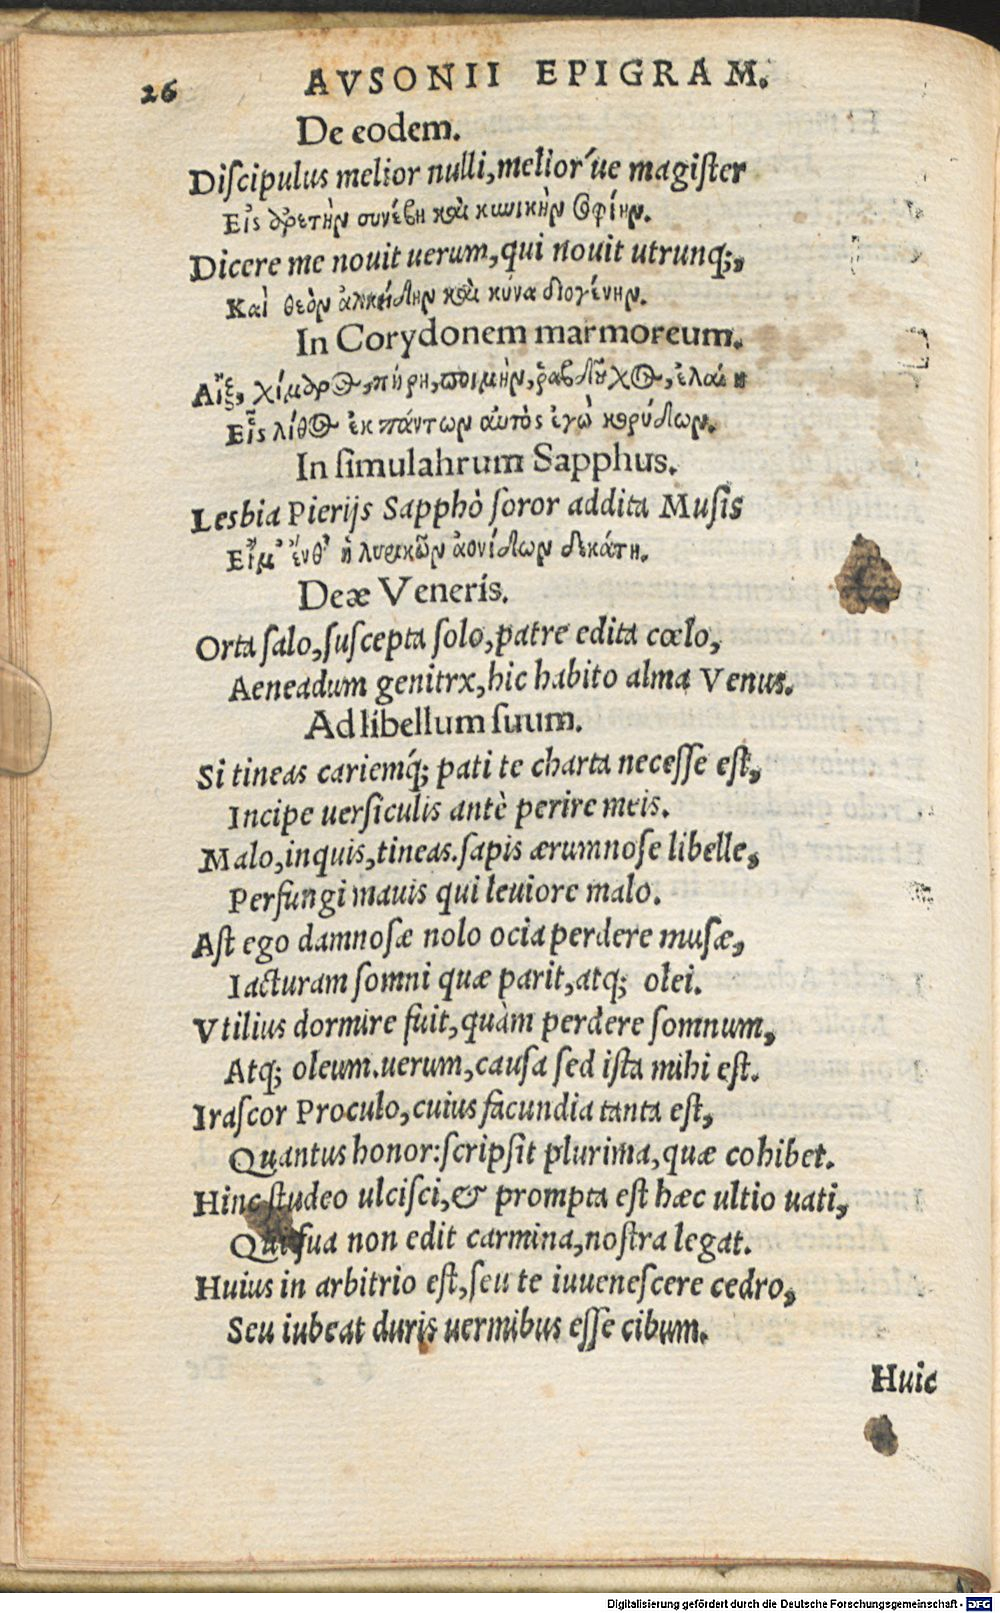 26 AVSONII EPIGRAM.
De eodem.
Diſcipulus melior nulli, melior´ue magiſter
Εἰς ἀρετὴν συνέβη καὶ κυνικὴν σοφίην.
Dicere me nouit uerum, qui nouit utrunq;,
Καὶ θεὸν ἀλκείδην καὶ κύνα διογένην.
In Corydonem marmoreum.
Αἴξ, χίμαρος, πήρη, ποιμὴν, ῥαβδοῦχος, ἐλαίη
Εἷς λίθος ἐκ πάντων αὐτὸς ἐγὼ κορύδων.
In ſimulahrum Sapphus.
Lesbia Pierijs Sapphò ſoror addita Muſis
Εἴμ᾽ ἔνθ᾽ ἡ λυρικῶν ἀονίδων δεκάτη.
Deæ Veneris.
Orta ſalo, ſuſcepta ſolo, patre edita cœlo,
Aeneadum genitrx, hic habito alma Venus.
Ad libellum ſuum.
Si tineas cariemq́; pati te charta neceſſe eſt,
Incipe uerſiculis antè perire meis.
Malo, inquis, tineas. ſapis ærumnoſe libelle,
Perfungi mauis qui leuiore malo.
Aſt ego damnoſæ nolo ocia perdere muſæ,
Iacturam ſomni quæ parit, atq; olei.
Vtilius dormire fuit, quàm perdere ſomnum,
Atq; oleum. uerum, cauſa ſed iſta mihi eſt.
Iraſcor Proculo, cuius facundia tanta eſt,
Quantus honor: ſcripſit plurima, quæ cohibet.
Hinc ſtudeo ulciſci, & prompta eſt hæc ultio uati,
Qui ſua non edit carmina, noſtra legat.
Huius in arbitrio eſt, ſeu te iuueneſcere cedro,
Seu iubeat duris uermibus eſſe cibum.
Huic
Digitalisierung gefördert durch die Deutsche Forschungsgemeinschaft - DFG